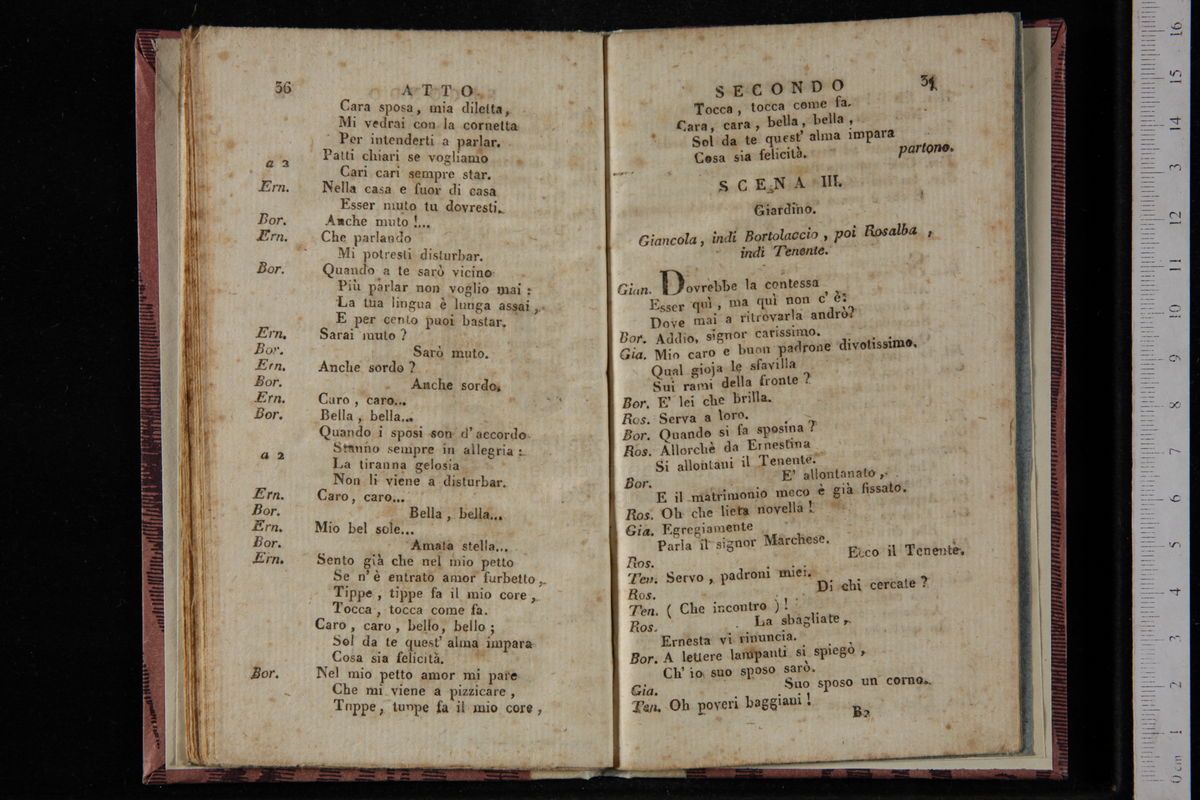 36
ATTO
Cara sposa, mia diletta,
Mi vedrai con la cornetta
Per intenderti a parlar.
a 2 Patti chiari se vogliamo
Cari cari sempre star.
Ern. Nella casa e fuor di casa
Esser muto tu dovresti.
Bor. Anche muto!...
Ern. Che parlando
Mi potresti disturbar.
Bor. Quando a te sarò vicino
Più parlar non voglio mai:
La tua lingua è lunga assai,
E per cento puoi bastar.
Ern. Sarai muto?
Bor. Sarò muto.
Ern. Anche sordo?
Bor. Anche sordo.
Ern. Caro, caro...
Bor. Bella, bella...
Quando i sposi son d'accordo
a 2 Stanno sempre in allegria:
La tiranna gelosia
Non li viene a disturbar.
Ern. Caro, caro...
Bor. Bella, bella...
Ern. Mio bel sole...
Bor. Amata stella...
Ern. Sento già che nel mio petto
Se n'è entrato amor furbetto,
Tippe, tippe fa il mio core,
Tocca, tocca come fa.
Caro, caro, bello, bello;
Sol da te quest' alma impara
Cosa sia felicità.
Bor. Nel mio petto amor mi pare
Che mi viene a pizzicare,
Tuppe, tuppe fa il mio core,
SECONDO
Tocca, tocca come fa.
Cara, cara, bella, bella,
Sol da te quest' alma impara
Cosa sia felicità. partono.
SCENA III.
Giardino.
Giancola, indi Bortolaccio, poi Rosalba,
indi Tenente.
Gian. Dovrebbe la contessa
Esser quì, ma quì non c'è:
Dove mai a ritrovarla andrò?
Bor. Addio, signor carissimo.
Gia. Mio caro e buon padrone divotissimo.
Qual gioja le sfavilla
Sui rami della fronte?
Bor. E' lei che brilla.
Ros. Serva a loro.
Bor. Quando si fa sposina?
Ros. Allorchè da Ernestina
Si allontani il Tenente.
Bor. E' allontanato,
E il matrimonio meco è già fissato.
Ros. Oh che lieta novella!
Gia. Egregiamente
Parla il signor Marchese.
Ros. Ecco il Tenente.
Ten. Servo, padroni miei.
Ros. Di chi cercate?
Ten. (Che incontro)!
Ros. La sbagliate,
Ernesta vi rinuncia.
Bor. A lettere lampanti si spiegò,
Ch' io suo sposo sarò.
Gia. Suo sposo un corno.
Ten. Oh poveri baggiani!
B2